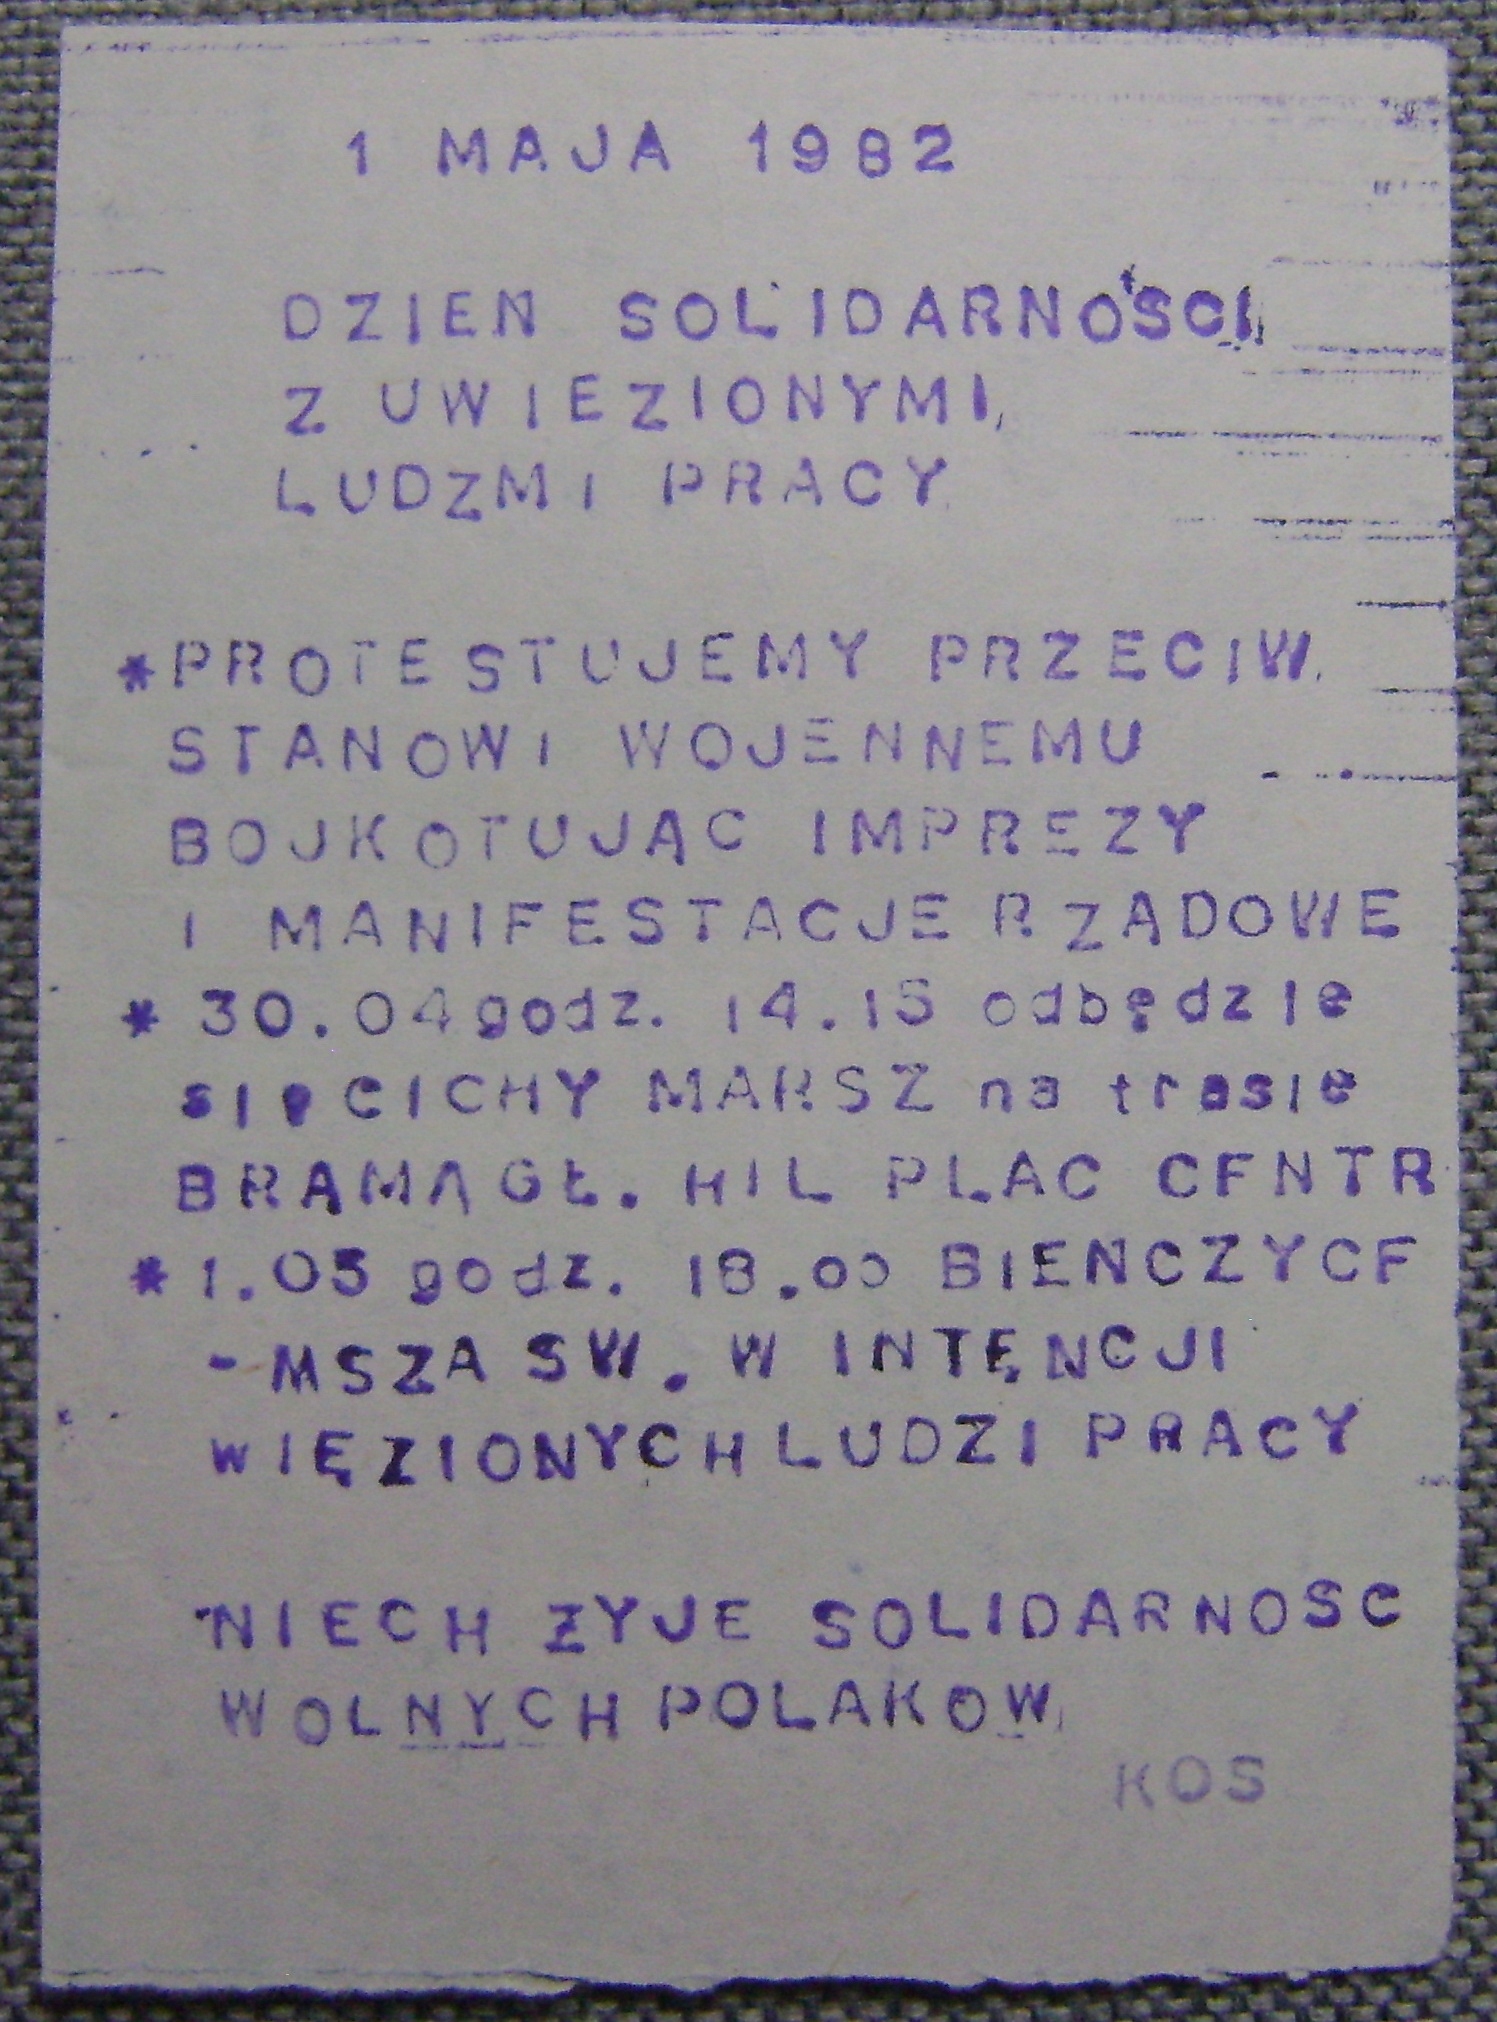 1 MAJA 1982
DZIEN SOLIDARNOŚCI
Z UWIEZIONYMI
LUDZMI PRACY
*PROTESTUJEMY PRZECIW
STANOWI WOJENNEMU
BOJKOTUJAC IMPREZY
I MANIFESTACJE RZADOWE
* 30.04 godz. 14.15 odbędzie
się CICHY MARSZ na trasie
BRAMA GŁ. HIL PLAC CENTR
* 1.05 godz. 18.00 BIENCZYCE
- MSZA SW. W INTENCJI
WIĘZIONYCH LUDZI PRACY
NIECH ZYJE SOLIDARNOSC
WOLNYCH POLAKOW
KOS